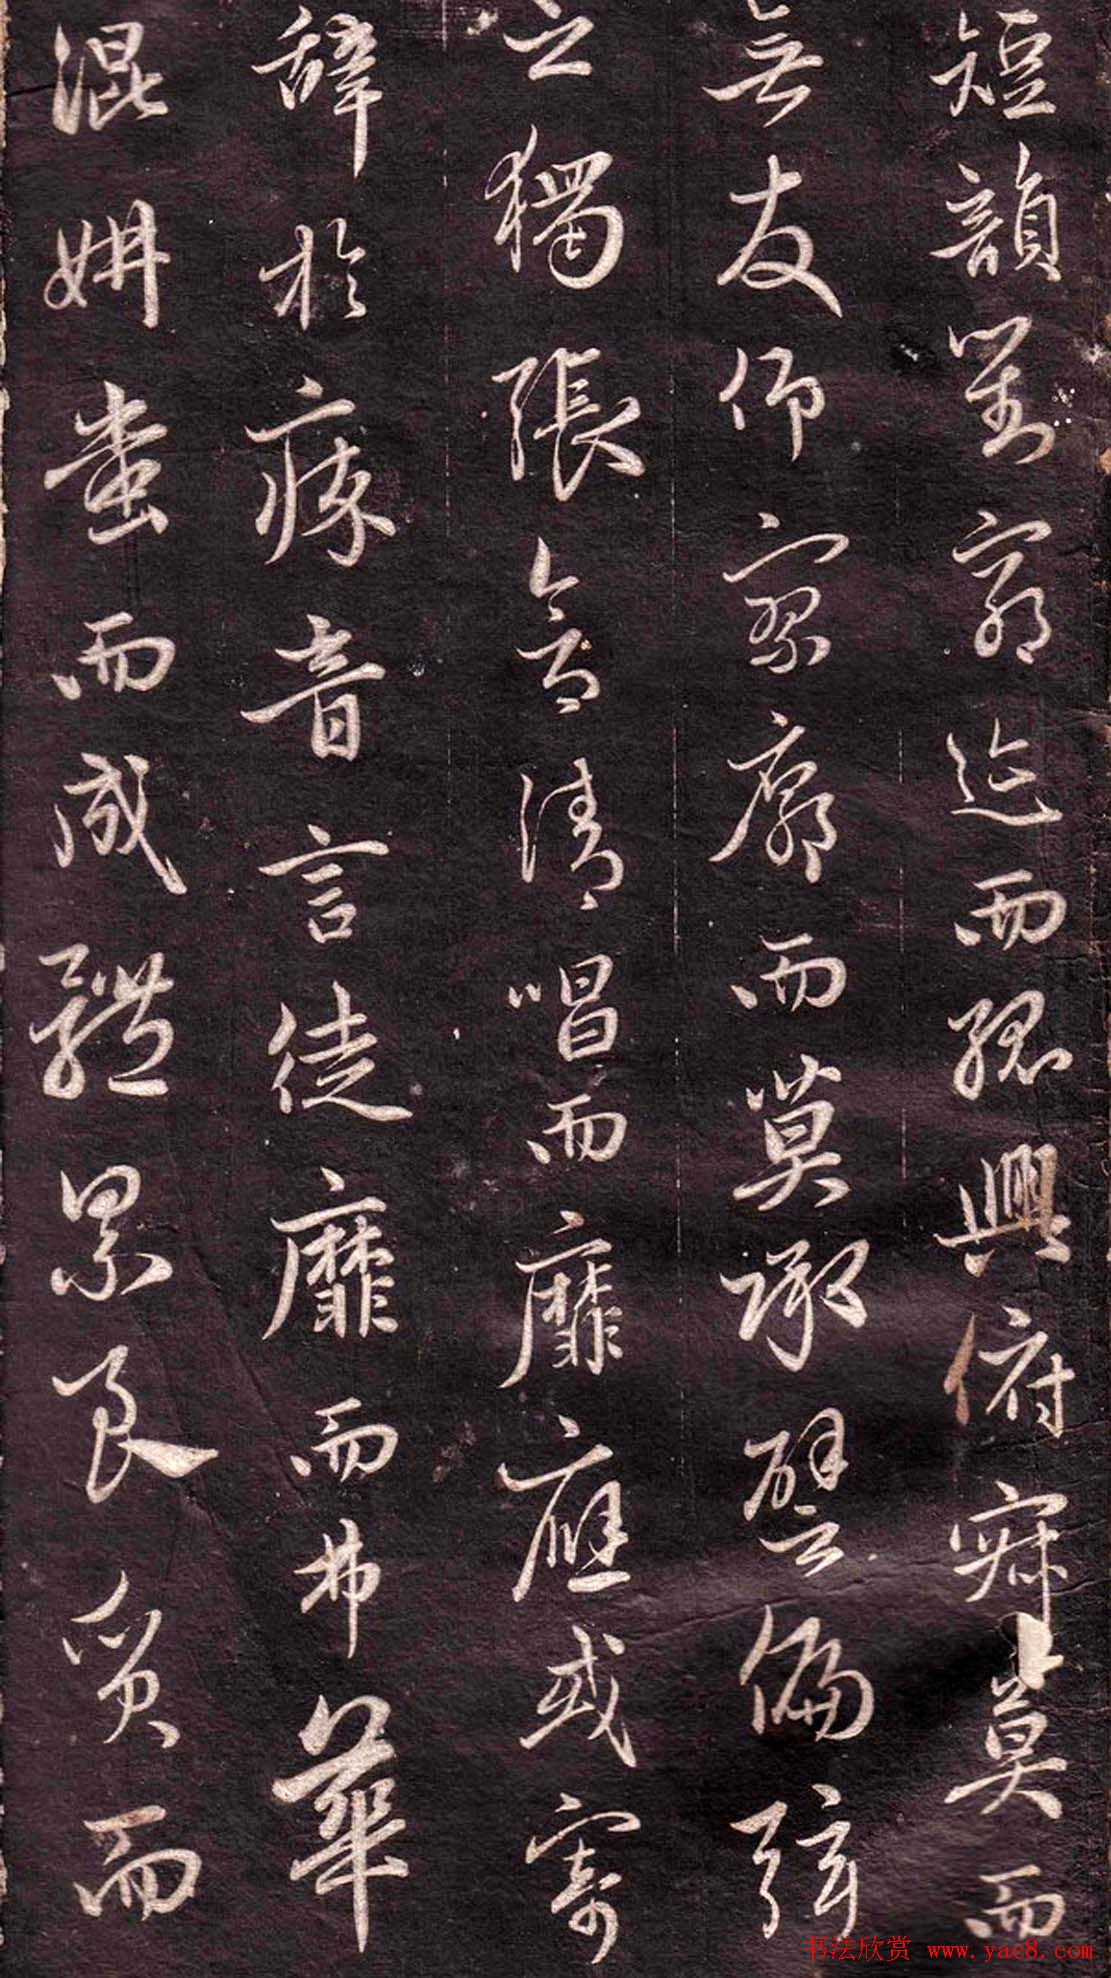 短韻對窮迹而孤興俯寂寞而
無友仰寥廓而莫承譬偏弦
之獨張含清唱而靡應或寄
辭於瘁音言徒靡而弗華
混妍蚩而成體累良質而
书法欣赏 www.yac8.com